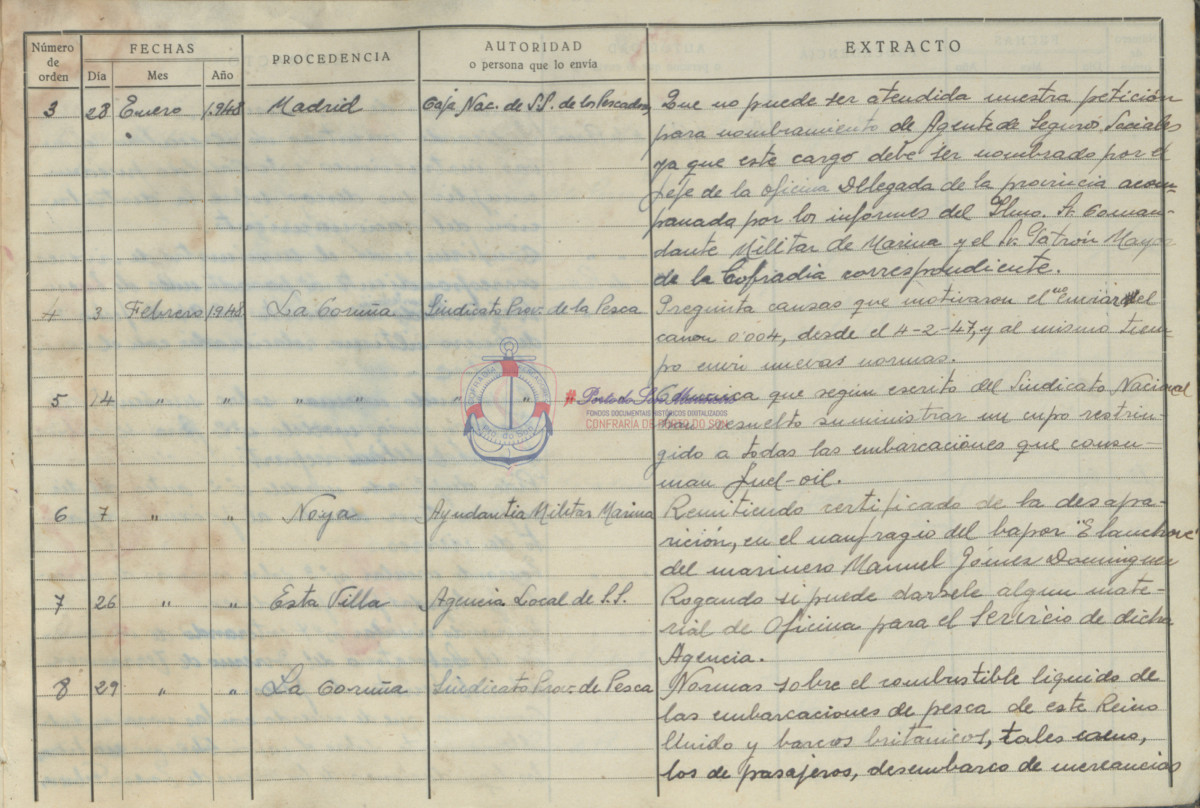 Número de orden FECHAS PROCEDENCIA AUTORIDAD o persona que lo envía EXTRACTO
Día Mes Año
3 28 Enero 1.948 Madrid Caja Nac. de S.S. de los Pescadores Que no puede ser atendida nuestra petición
para nombramiento de Agente de Seguros Sociales
ya que este cargo debe ser nombrado por el
Jefe de la Oficina Delegada de la provincia acom-
panada por los informes del Ilmo. Sr. Coman-
dante Militar de Marina y el Sr. Patrón Mayor
de la Cofradia correspondiente.
4 3 Febrero 1948 La Coruña Sindicato Prov. de la Pesca Pregunta causas que motivaron el "no" enviar el
canon 0'004, desde el 4-2-47, y al mismo tiem-
po envii nuevas normas.
5 14 " " " " " " Comunica que según escrito del Sindicato Nacional
han resuelto suministrar un cupo restrin-
gido a todas las embarcaciones que consu-
man fuel-oil.
6 7 " " Noya Ayudantia Militar Marina Remitiendo certificado de la desapa-
rición, en el naufragio del bapor
del marinero Manuel Gómez Dominguez
7 26 " " Esta Villa Agencia Local de S.S. Rogando si puede darsele algun mate-
rial de Oficina para el Servicio de dicha
Agencia.
8 29 " " La Coruña Sindicato Prov. de Pesca Normas sobre el combustible liquido de
las embarcaciones de pesca de este Reino
Unido y barcos britanicos, tales como,
los de pasajeros, desembarco de mercancias
CONFRARÍA PESCADORES
PORTO DO SON
FONDOS DOCUMENTAIS HISTÓRICOS DIXITALIZADOS
CONFRARÍA DE PORTO DO SON